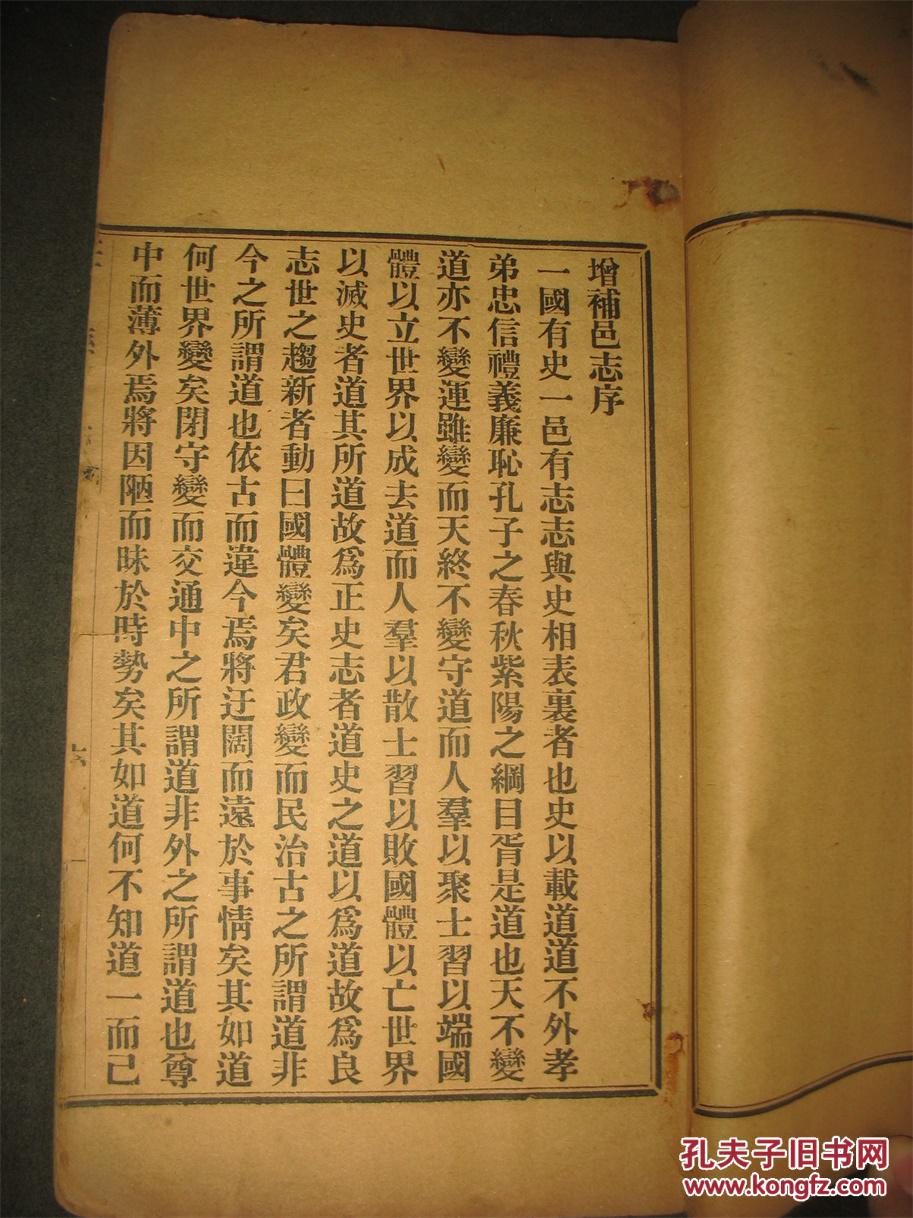 增補邑志序
一國有史一邑有志志與史相表裏者也史以載道道不外孝
弟忠信禮義廉恥孔子之春秋紫陽之綱目胥是道也天不變
道亦不變運雖變而天終不變守道而人羣以聚士習以端國
體以立世界以成去道而人羣以散士習以敗國體以亡世界
以滅史者道其所道故爲正史志者道史之道以爲道故爲良
志世之趨新者動曰國體變矣君政變而民治古之所謂道非
今之所謂道也依古而違今焉將迂闊而遠於事情矣其如道
何世界變矣閉守變而交通中之所謂道非外之所謂道也尊
中而薄外焉將因陋而昧於時勢矣其如道何不知道一而已
孔夫子旧书网
www.kongfz.com